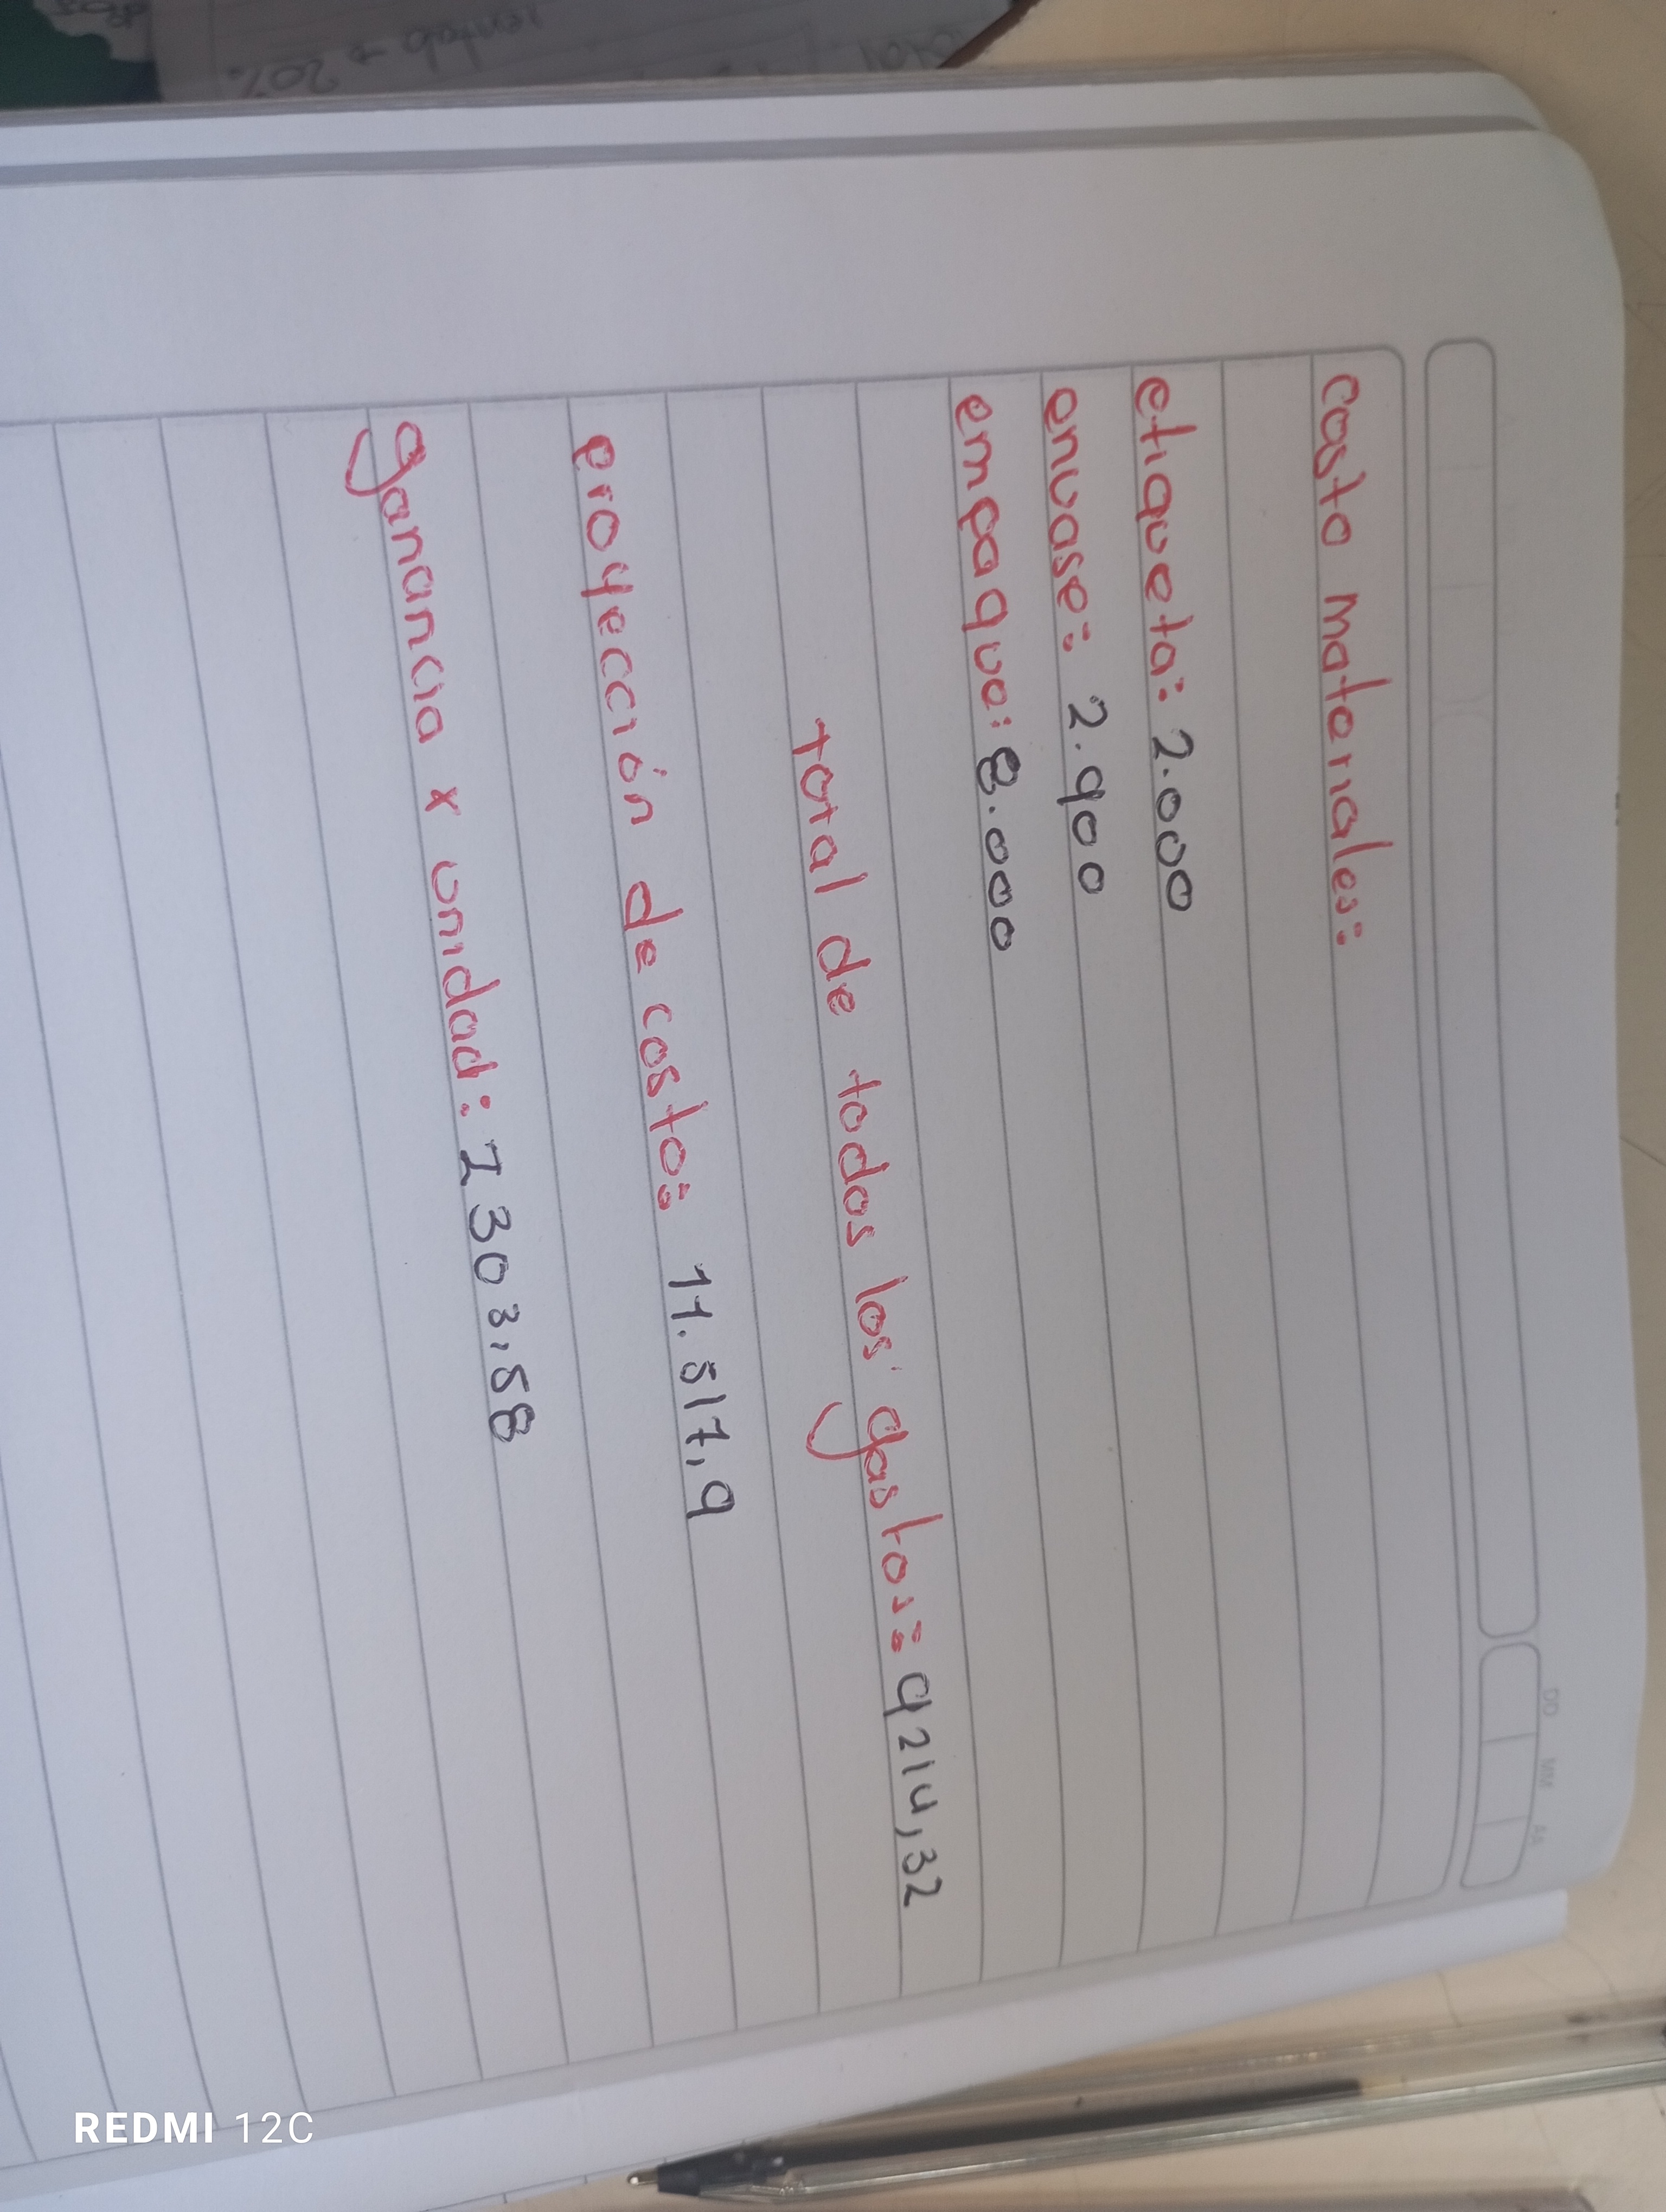 costo materiales:
etiqueta: 2.000
envase: 2.900
empaque: 8.000
total de todos los gastos: 9214,32
proyección de costos: 11.517,9
ganancia x unidad: 2303,58
DD MM AA
rentab → 20%
REDMI 12C